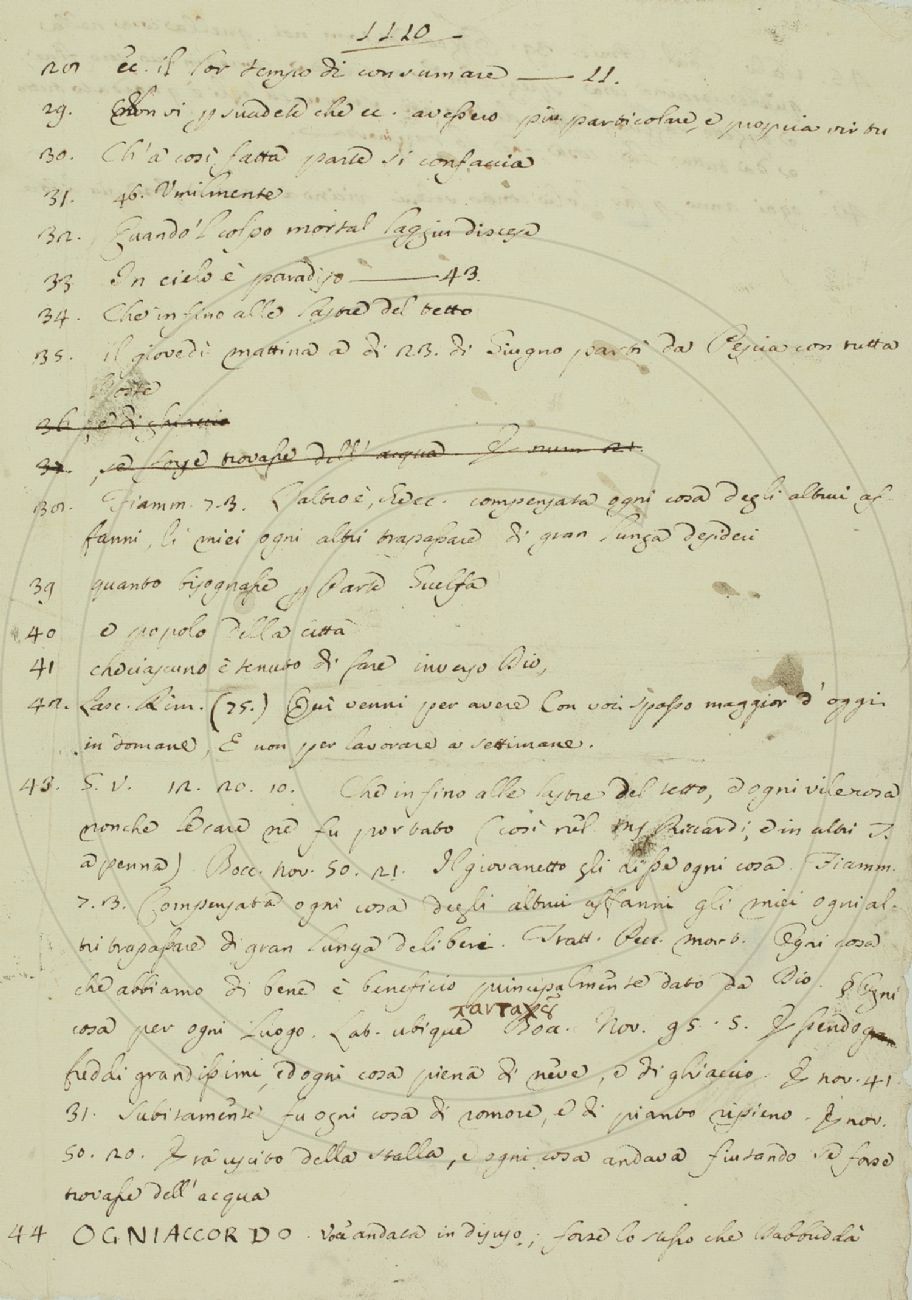 1110
28 ec. il lor tempo di consumare —— 11.
29. Non vi psuadete che ec. avessero piu particolare, e propria virtu
30. Ch'a così fatta parte si confaccia
31. 46. Vmilmente
32. Quando'l colpo mortal laggiu discese
33 In cielo è paradiso ——— 43.
34. Che in fino alle lastre del tetto
35. il giovedì mattina a dì 23. di Giugno partì da Pescia con tutta
l'oste
36. , e di ghiaccio
37. , se forse trovasse dell'acqua. E num 21.
38. Fiamm. 7.3. L'altro è, che ec. compensata ogni cosa degli altrui af-
fanni, li miei ogni altri trapassare di gran lunga desideri
39 quanto bisognasse p Parte Guelfa
40 e popolo della città
41 che ciascuno è tenuto di fare inverso Dio,
42. Lasc. Rim. (75.) Qui venni per avere Con voi spasso maggior d'oggi
in domane, E non per lavorare a settimane.
43. G. V. 12. 20. 10. Che in fino alle lastre del tetto, e ogni vile cosa
nonche le care ne fu portato (così nel ms Riccardi, e in altri T.
a penna). Bocc. nov. 50. 21. Il giovanetto gli disse ogni cosa. Fiamm.
7.3. Compensata ogni cosa degli altrui affanni gli miei ogni al-
tri trapassare di gran lunga deliberi. Tratt. Pecc. mort. Ogni cosa
che abbiamo di bene è beneficio principalmente dato da Dio. § Ogni
cosa per ogni Luogo. Lat. ubique Bocc. Nov. 95. 5. Essendo
freddi grandissimi, ed ogni cosa piena di neve, e di ghiaccio. E nov. 41.
31. Subitamente fu ogni cosa di romore, e di pianto ripieno. E nov.
50. 20. Era uscito della stalla, e ogni cosa andava fiutando se forse
trovasse dell'acqua
44 OGNIACCORDO. Voce andata in disuso; forse lo stesso che Babbuddà